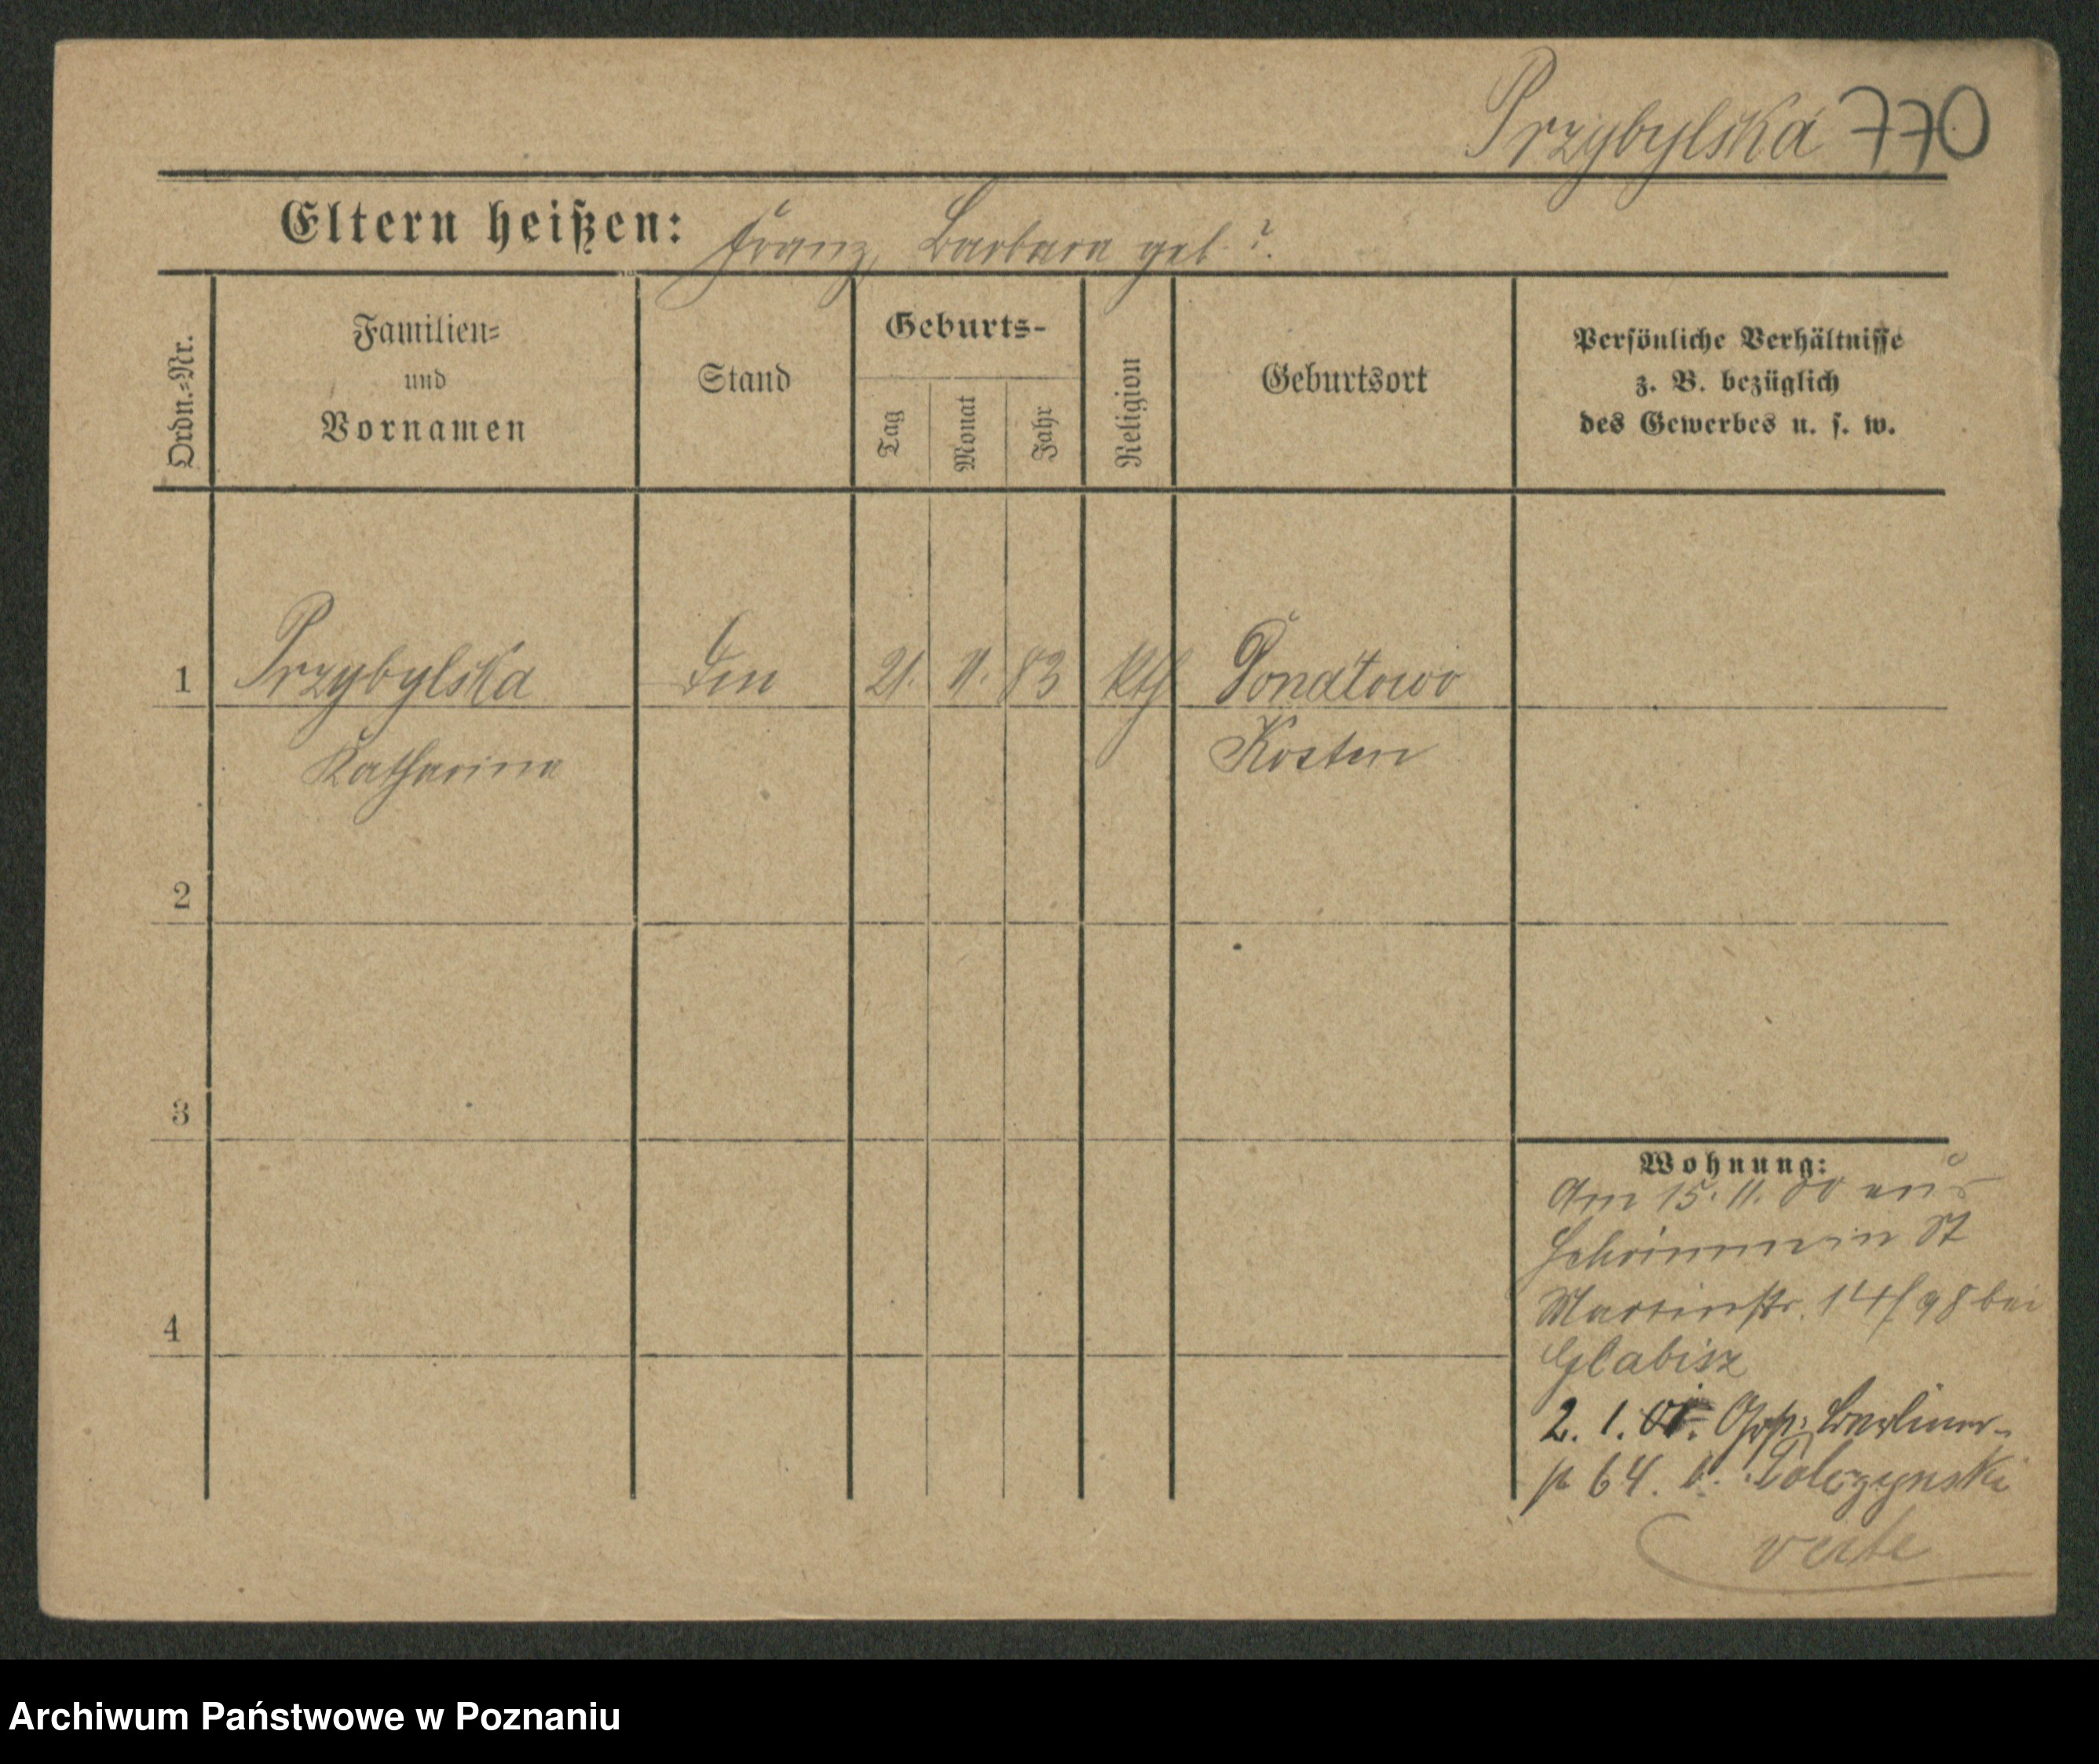 Przybylska 770
Eltern heißen: Franz, Barbara geb. ?
Ordn.=Nr.
Familien=
und
Vornamen
Stand
Geburts-
Tag
Monat
Jahr
Religion
Geburtsort
Persönliche Verhältnisse
z. B. bezüglich
des Gewerbes u. s. w.
1 Przybylska 21. 11. 83 kth Ponatowo
Katharina Kosten
2
3
4
Wohnung:
Am 15. 11. 00 aus
Schrimm in St
Martinstr. 14/98 bei
Glabisz
2. 1. 01. Berliner-
64. b.
verte
Archiwum Państwowe w Poznaniu